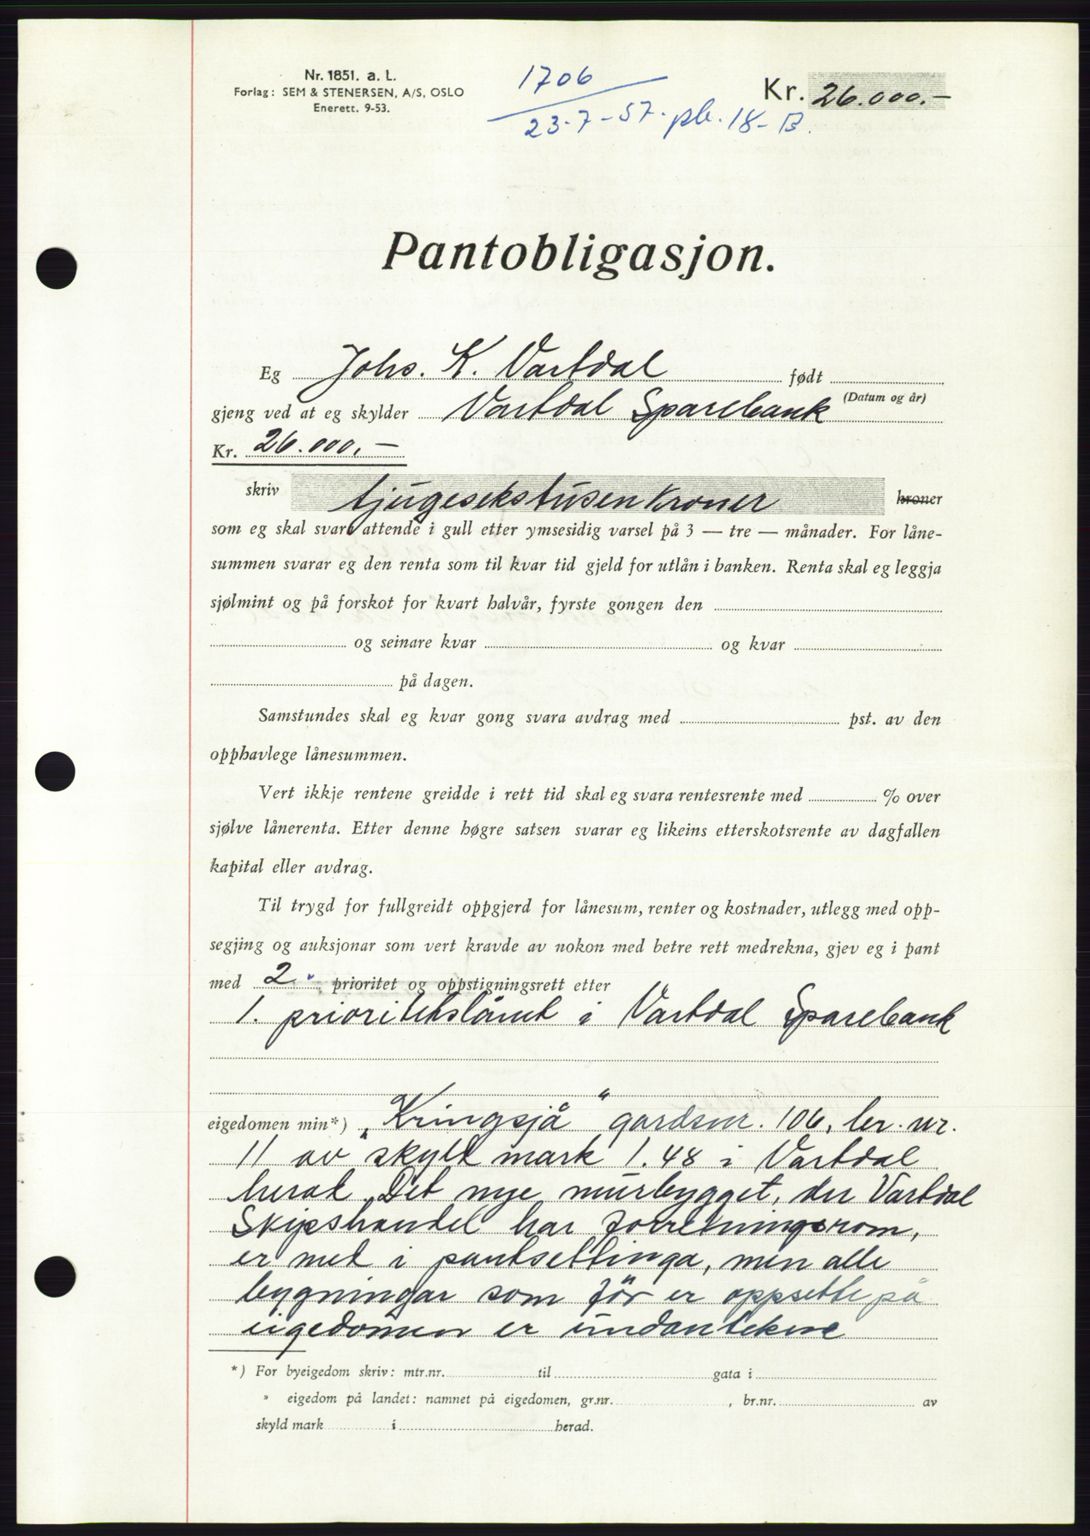 Nr. 1851. a. L.
Forlag: SEM & STENERSEN, A/S, OSLO
Enerett. 9-53.
1706
23-7-57. pb. 18-B.
Kr. 26.000.-
Pantobligasjon.
Eg Johs. K. Vartdal født
(Datum og år)
gjeng ved at eg skylder Vartdal Sparebank
Kr. 26.000.-
skriv tjugesekstusen kroner kroner
som eg skal svara attende i gull etter ymsesidig varsel på 3 — tre — månader. For låne-
summen svarar eg den renta som til kvar tid gjeld for utlån i banken. Renta skal eg leggja
sjølmint og på forskot for kvart halvår, fyrste gongen den
og seinare kvar og kvar
på dagen.
Samstundes skal eg kvar gong svara avdrag med pst. av den
opphavlege lånesummen.
Vert ikkje rentene greidde i rett tid skal eg svara rentesrente med % over
sjølve lånerenta. Etter denne høgre satsen svarar eg likeins etterskotsrente av dagfallen
kapital eller avdrag.
Til trygd for fullgreidt oppgjerd for lånesum, renter og kostnader, utlegg med opp-
segjing og auksjonar som vert kravde av nokon med betre rett medrekna, gjev eg i pant
med 2. prioritet og oppstigningsrett etter
1. prioritetslånet i Vartdal Sparebank
eigedomen min*) „Kringsjå" gardsnr. 106, br. nr.
11 av skyld mark 1.48 i Vartdal
herad. Det nye murbygget, der Vartdal
Skipshandel har forretningsrom,
er med i pantsettinga, men alle
bygningar som før er oppsette på
eigedomen er undantekne
*) For byeigedom skriv: mtr.nr. til gata i
„ eigedom på landet: namnet på eigedomen, gr.nr. , br.nr. av
skyld mark i herad.